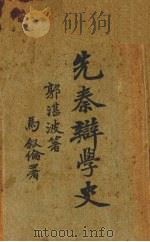 先秦辯學史
郭湛波著
馬叙倫署